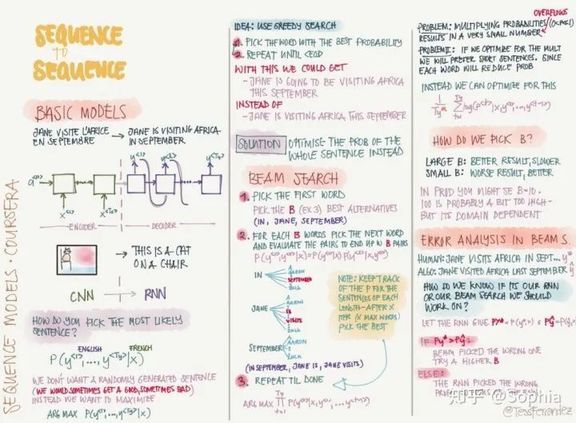 SEQUENCE
to
SEQUENCE
BASIC MODELS
JANE VISITE L'AFRICE
EN SEPTEMBRE → JANE IS VISITING AFRICA
IN SEPTEMBER
ENCODER
DECODER
→ THIS IS A CAT
ON A CHAIR
CNN → RNN
HOW DO YOU PICK THE MOST LIKELY
SENTENCE?
ENGLISH FRENCH
P(y<1>,...,y<Ty>|x)
WE DON'T WANT A RANDOMLY GENERATED SENTENCE
(WE WOULD SOMETIMES GET A GOOD, SOMETIMES BAD)
INSTEAD WE WANT TO MAXIMIZE
ARG MAX P(y<1>,...,y<Ty>|x)
SEQUENCE MODELS: COURSERA
IDEA: USE GREEDY SEARCH
1. PICK THE WORD WITH THE BEST PROBABILITY
2. REPEAT UNTIL <EOS>
WITH THIS WE COULD GET
- JANE IS GOING TO BE VISITING AFRICA
THIS SEPTEMBER
INSTEAD OF
- JANE IS VISITING AFRICA THIS SEPTEMBER
SOLUTION OPTIMISE THE PROB OF THE
WHOLE SENTENCE INSTEAD
BEAM SEARCH
1. PICK THE FIRST WORD
PICK THE B (EX. 3) BEST ALTERNATIVES
(IN, JANE, SEPTEMBER)
2. FOR EACH B WORDS PICK THE NEXT WORD
AND EVALUATE THE PAIRS TO END UP W B PAIRS
IN
AARON
SEPTEMBER
ZULU
JANE
AARON
IS
VISITS
ZULU
SEPTEMBER
AARON
ZULU
NOTE: KEEP TRACK
OF THE P FOR THE
SENTENCES OF EACH
LENGTH - AFTER X
ITER (X MAX WORDS)
PICK THE BEST
(IN SEPTEMBER, JANE IS, JANE VISITS)
3. REPEAT TIL DONE
OVERFLOWS
PROBLEM: MULTIPLYING PROBABILITIES
RESULTS IN A VERY SMALL NUMBER
PROBLEM: IF WE OPTIMIZE FOR THE MULT
WE WILL PREFER SHORT SENTENCES. SINCE
EACH WORD WILL REDUCE PROB
INSTEAD WE CAN OPTIMIZE FOR THIS
HOW DO WE PICK B?
LARGE B: BETTER RESULT, SLOWER
SMALL B: WORSE RESULT, BETTER
IN PROD YOU MIGHT SEE B=10.
100 IS PROBABLY A BIT TOO HIGH -
BUT ITS DOMAIN DEPENDENT
ERROR ANALYSIS IN BEAM S.
HUMAN: JANE VISITS AFRICA IN SEPT...
ALGO: JANE VISITED AFRICA LAST SEPTEMBER
HOW DO WE KNOW IF ITS OUR RNN
OR OUR BEAM SEARCH WE SHOULD
WORK ON?
BEAM PICKED THE WRONG ONE
TRY A HIGHER B
ELSE:
THE RNN PICKED THE WRONG
知乎 @Sophia
@TessFerrandez